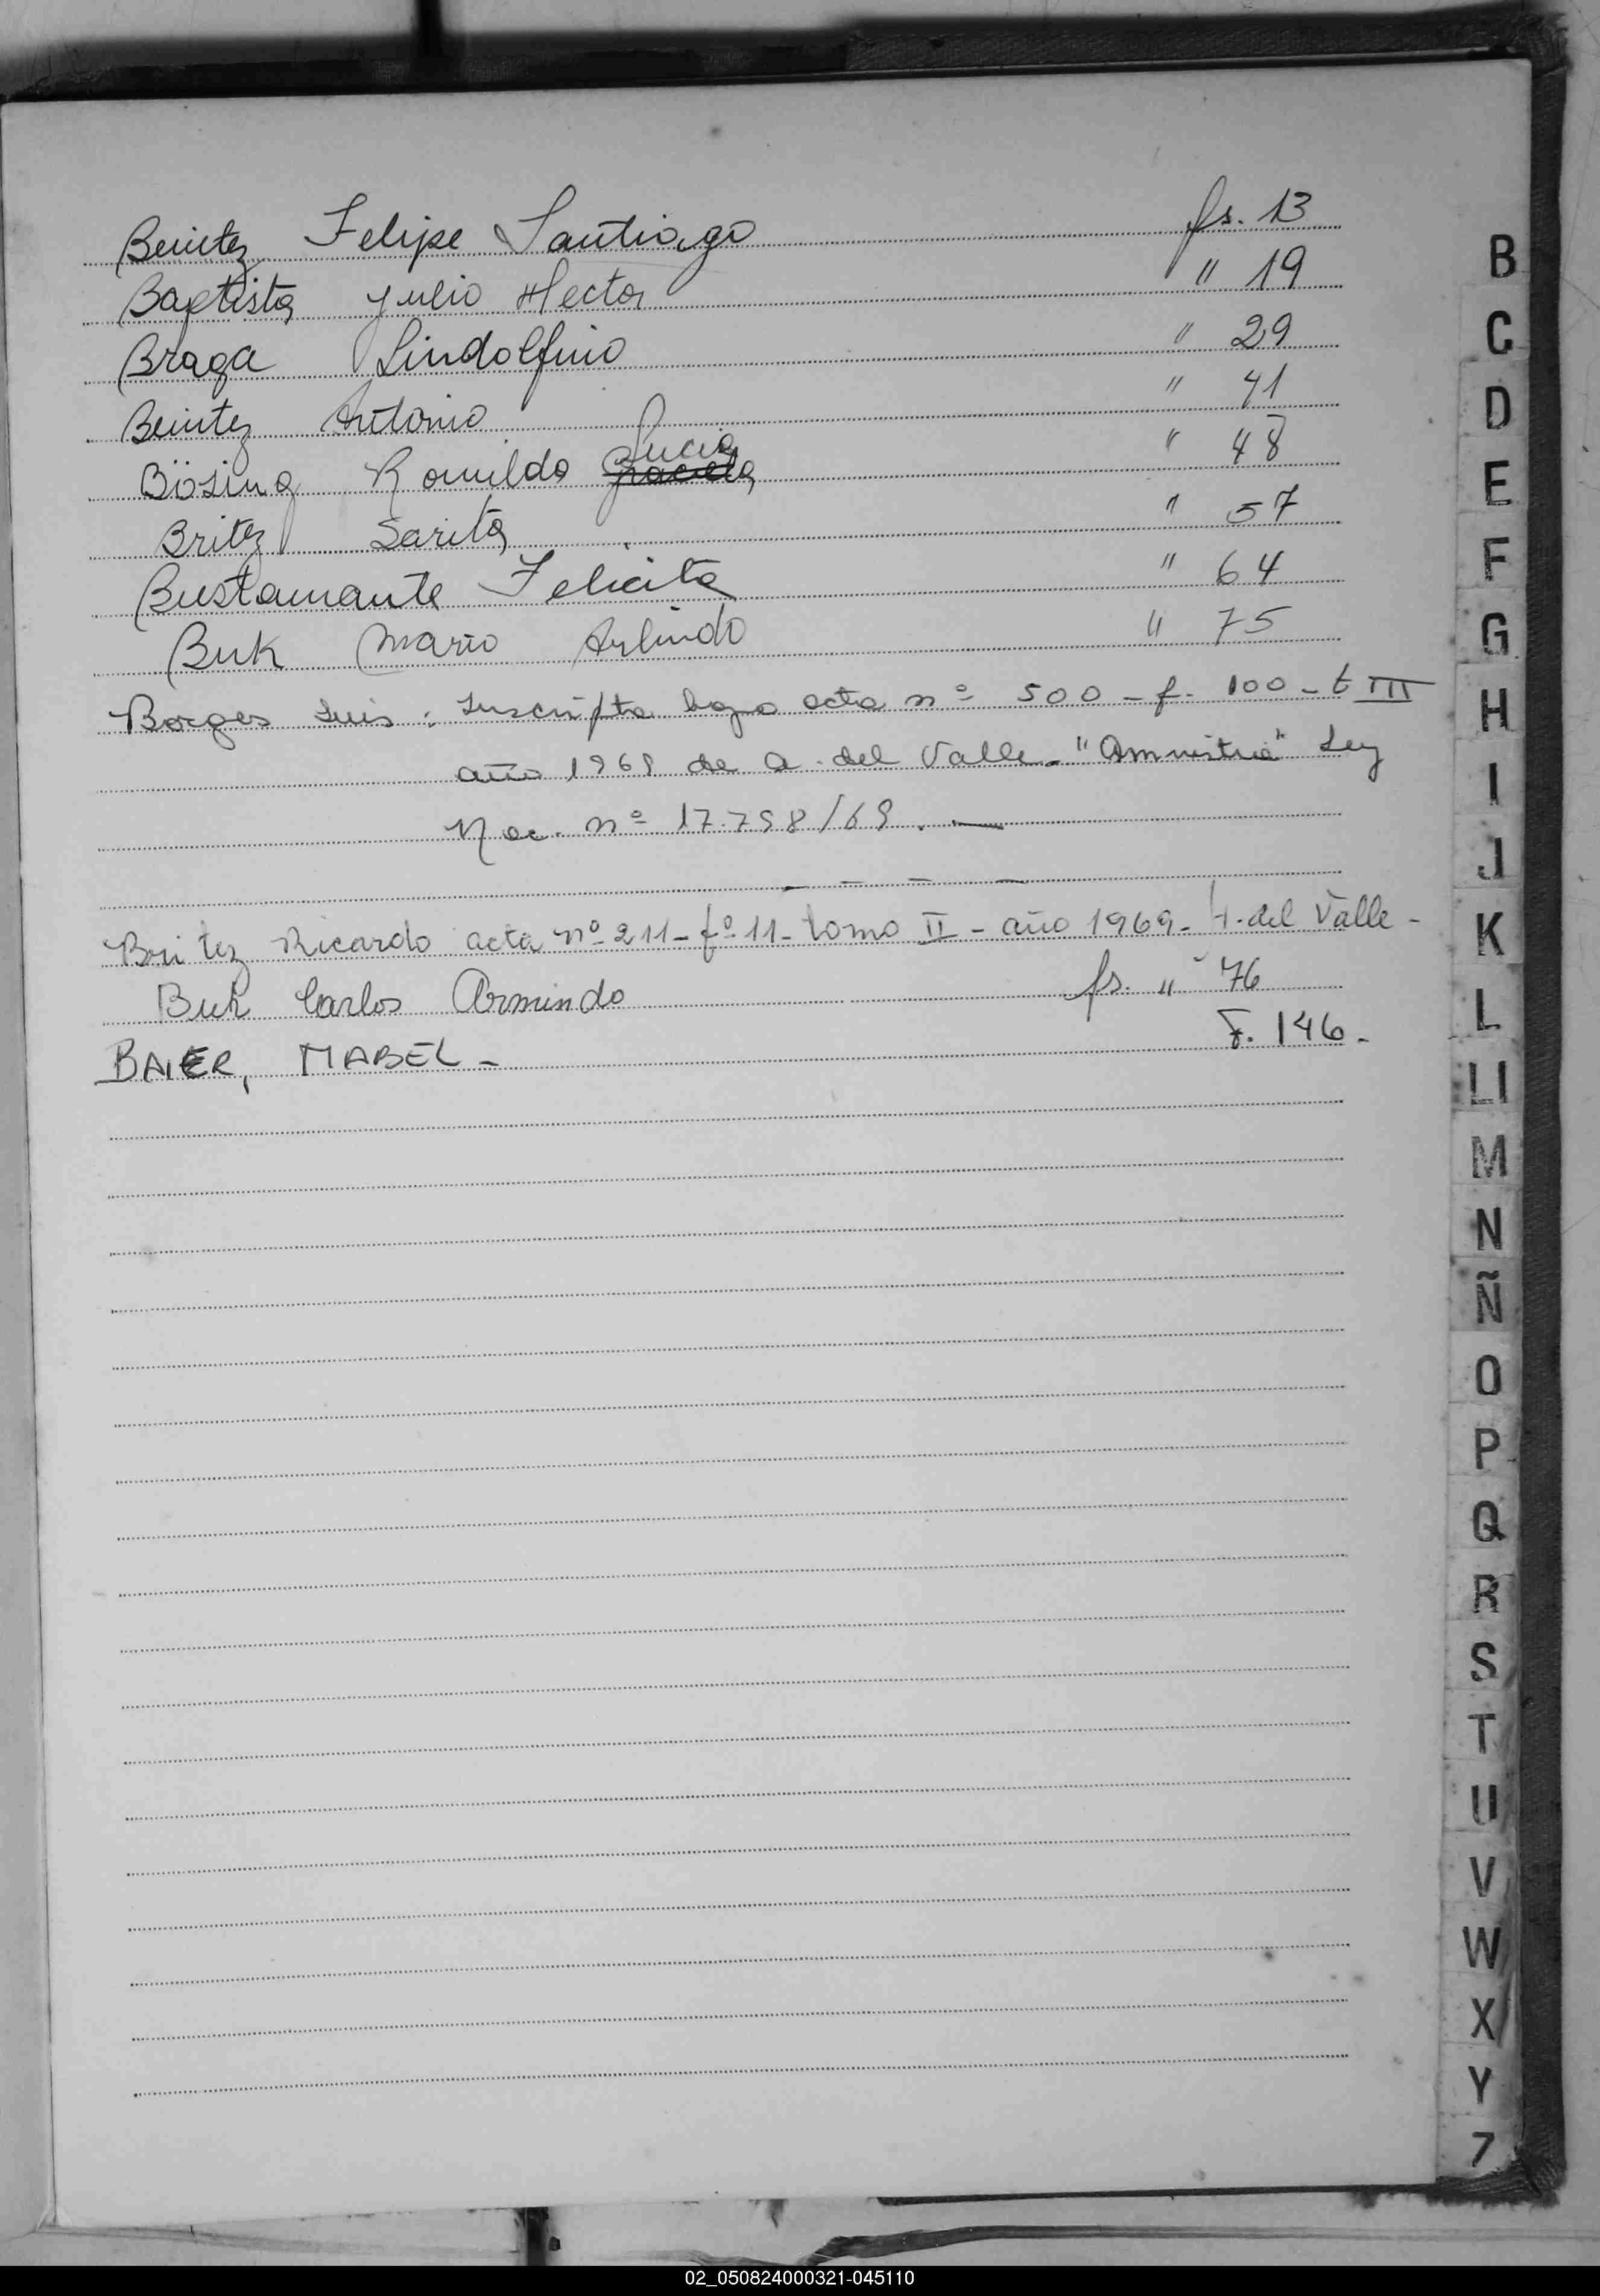 Benitez Felipe Santiago fs. 13
Baptista Julio Hector " 19
Braga Lindolfino " 29
Benitez Antonio " 41
Lucia
Bösing Romildo Graciela " 48
Britez Sarita " 57
Bustamante Felicita " 64
Buk Mario Arlindo " 75
Borges Luis: Inscripta bajo acta nº 500 - f. 100 - t III
año 1969 de A. del Valle. "Amnistia" Ley
Nac. nº 17.798/69. —
Britez Ricardo acta nº 211 - fº 11 - tomo II - año 1969 - A. del Valle -
Buk Carlos Armindo fs. " 76
BAIER, MABEL - F. 146.
B
C
D
E
F
G
H
I
J
K
L
Ll
M
N
Ñ
O
P
Q
R
S
T
U
V
W
X
Y
Z
02_050824000321-045110